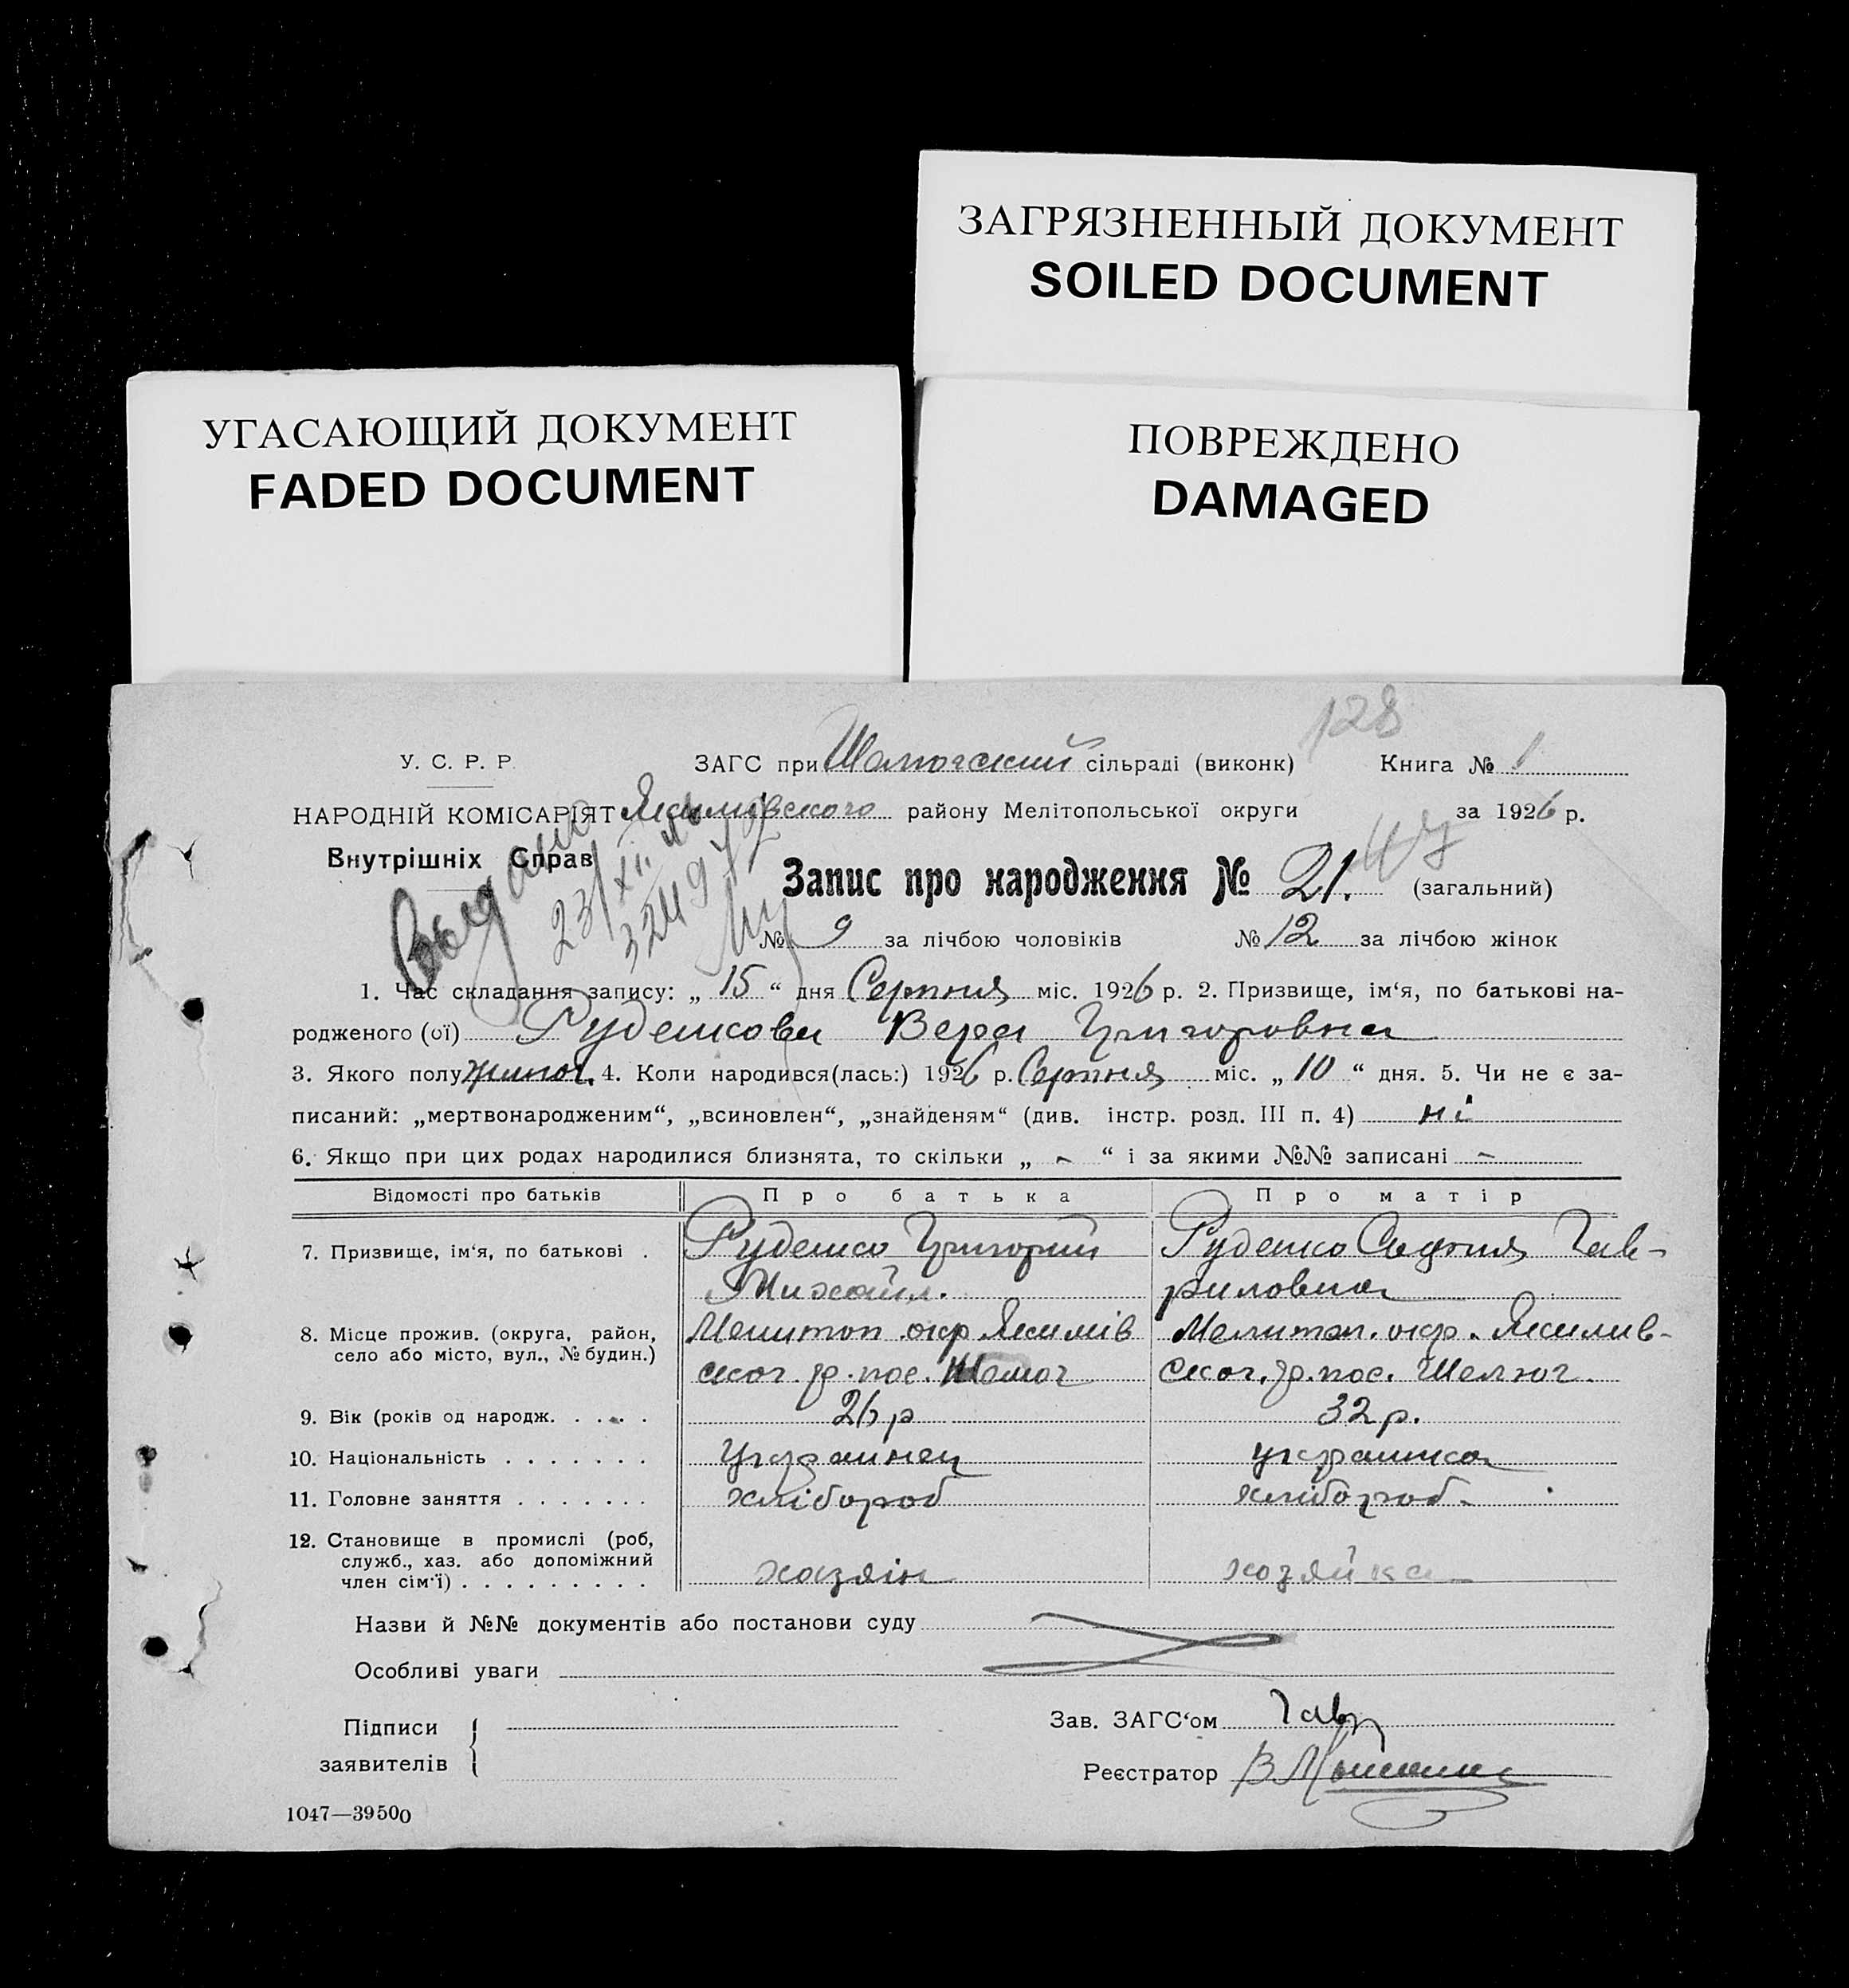 ЗАГРЯЗНЕННЫЙ ДОКУМЕНТ
SOILED DOCUMENT
УГАСАЮЩИЙ ДОКУМЕНТ
FADED DOCUMENT
ПОВРЕЖДЕНО
DAMAGED
128
У. С. Р. Р.
ЗАГС при сільраді (виконк) Книга № 1
НАРОДНІЙ КОМІСАРІЯТ Якимівского району Мелітопольської округи за 1926 р.
Внутрішніх Справ
Запис про народження № 21. (загальний)
№ 9 за лічбою чоловіків № 12 за лічбою жінок
1. Час складання запису: „ 15 “ дня Серпня міс. 1926 р. 2. Призвище, ім‘я, по батькові на-
родженого (ої) Руденкова Вера Григоровна
3. Якого полу жиноч. 4. Коли народився(лась:) 1926 р. Серпня міс. „ 10 “ дня. 5. Чи не є за-
писаний: „мертвонародженим“, „всиновлен“, „знайденям“ (див. інстр. розд. III п. 4) ні
6. Якщо при цих родах народилися близнята, то скільки „ - “ і за якими №№ записані -
Відомості про батьків Про батька Про матір
7. Призвище, ім‘я, по батькові . Руденко Григорий Руденко Гав-
Михайл. риловна
8. Місце прожив. (округа, район, Мелитоп окр Якимів Мелитоп. окр. Якимив-
село або місто, вул., № будин.) ског. р. пос. Шелюг ског. р. пос. Шелюг.
9. Вік (років од народж. . . . . 26 р 32 р.
10. Національність . . . . . . . Украинец украинка
11. Головне заняття . . . . . . . хлібороб хлібороб.
12. Становище в промислі (роб,
служб., хаз. або допоміжний
член сім‘ї) . . . . . . . . . хазяін хозяйка
Назви й №№ документів або постанови суду
Особливі уваги
Підписи
заявителів
Зав. ЗАГС‘ом Гавр
Реєстратор
1047—39500